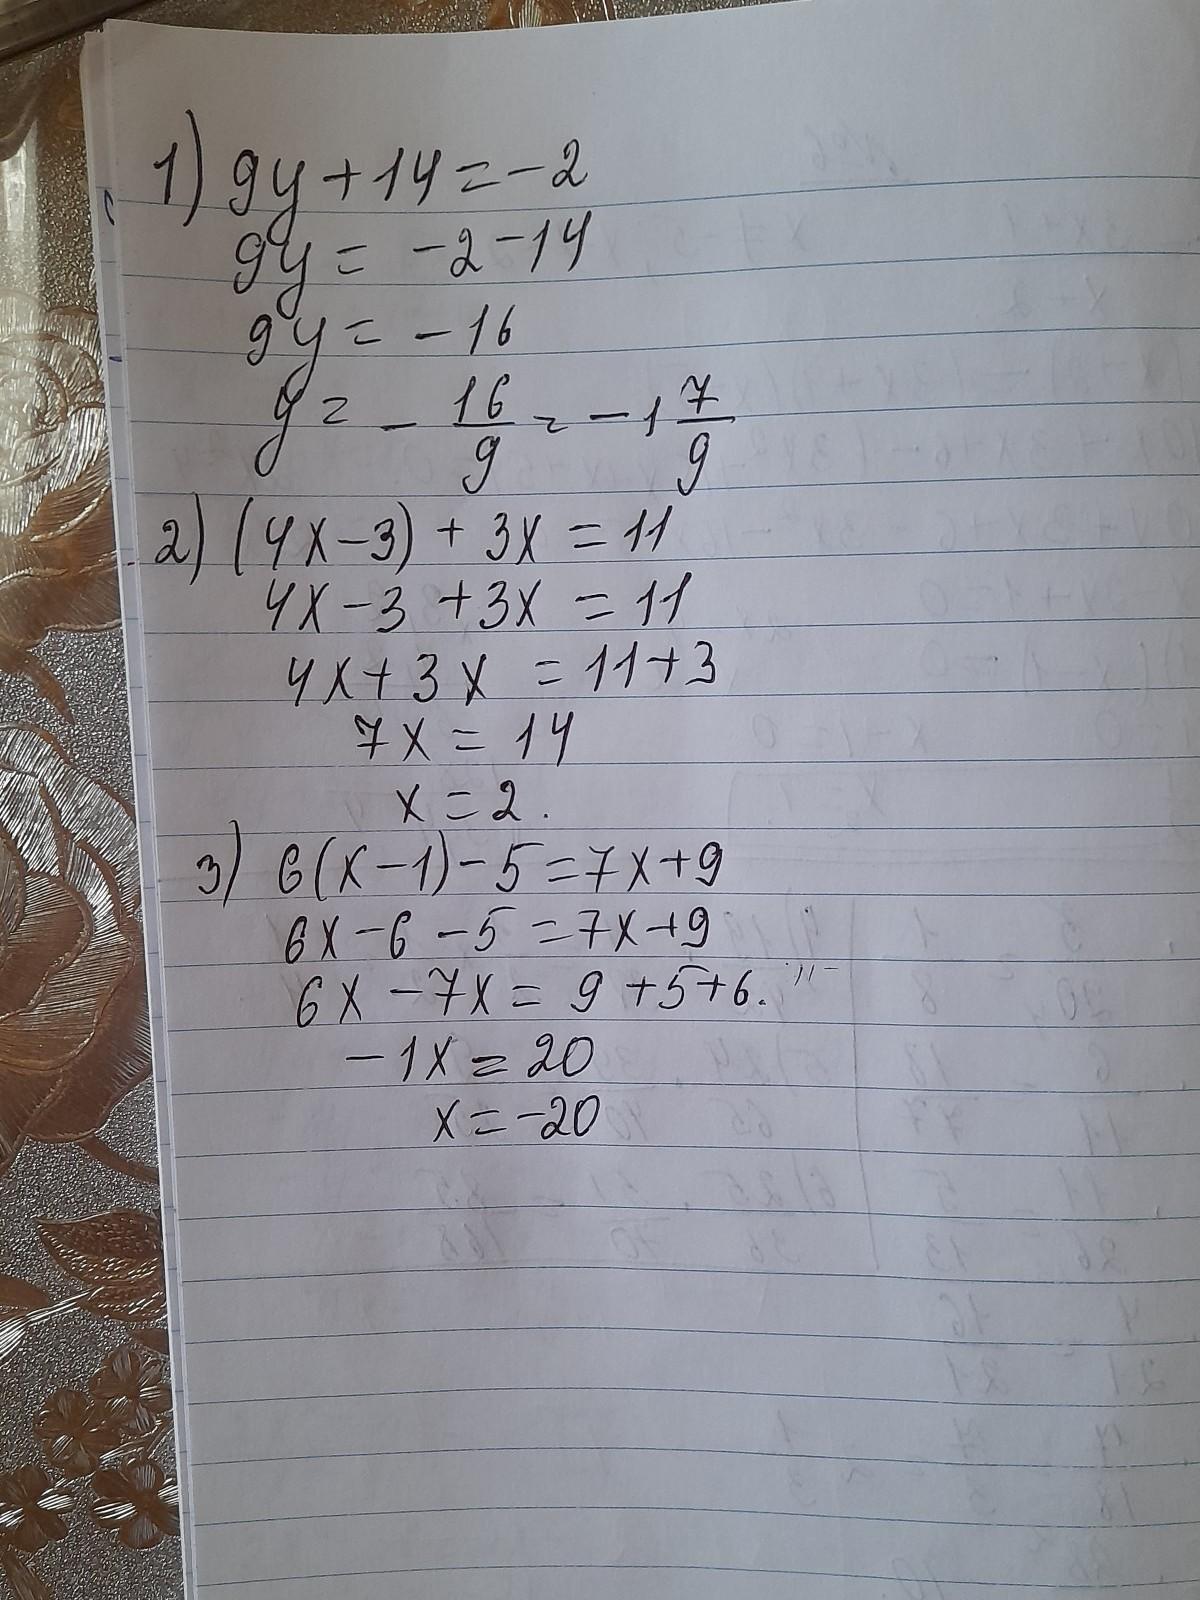 1) 9y + 14 = -2
9y = -2 - 14
9y = -16
y = - 16/9 = -1 7/9
2) (4x - 3) + 3x = 11
4x - 3 + 3x = 11
4x + 3x = 11 + 3
7x = 14
x = 2.
3) 6(x - 1) - 5 = 7x + 9
6x - 6 - 5 = 7x + 9
6x - 7x = 9 + 5 + 6.
-1x = 20
x = -20